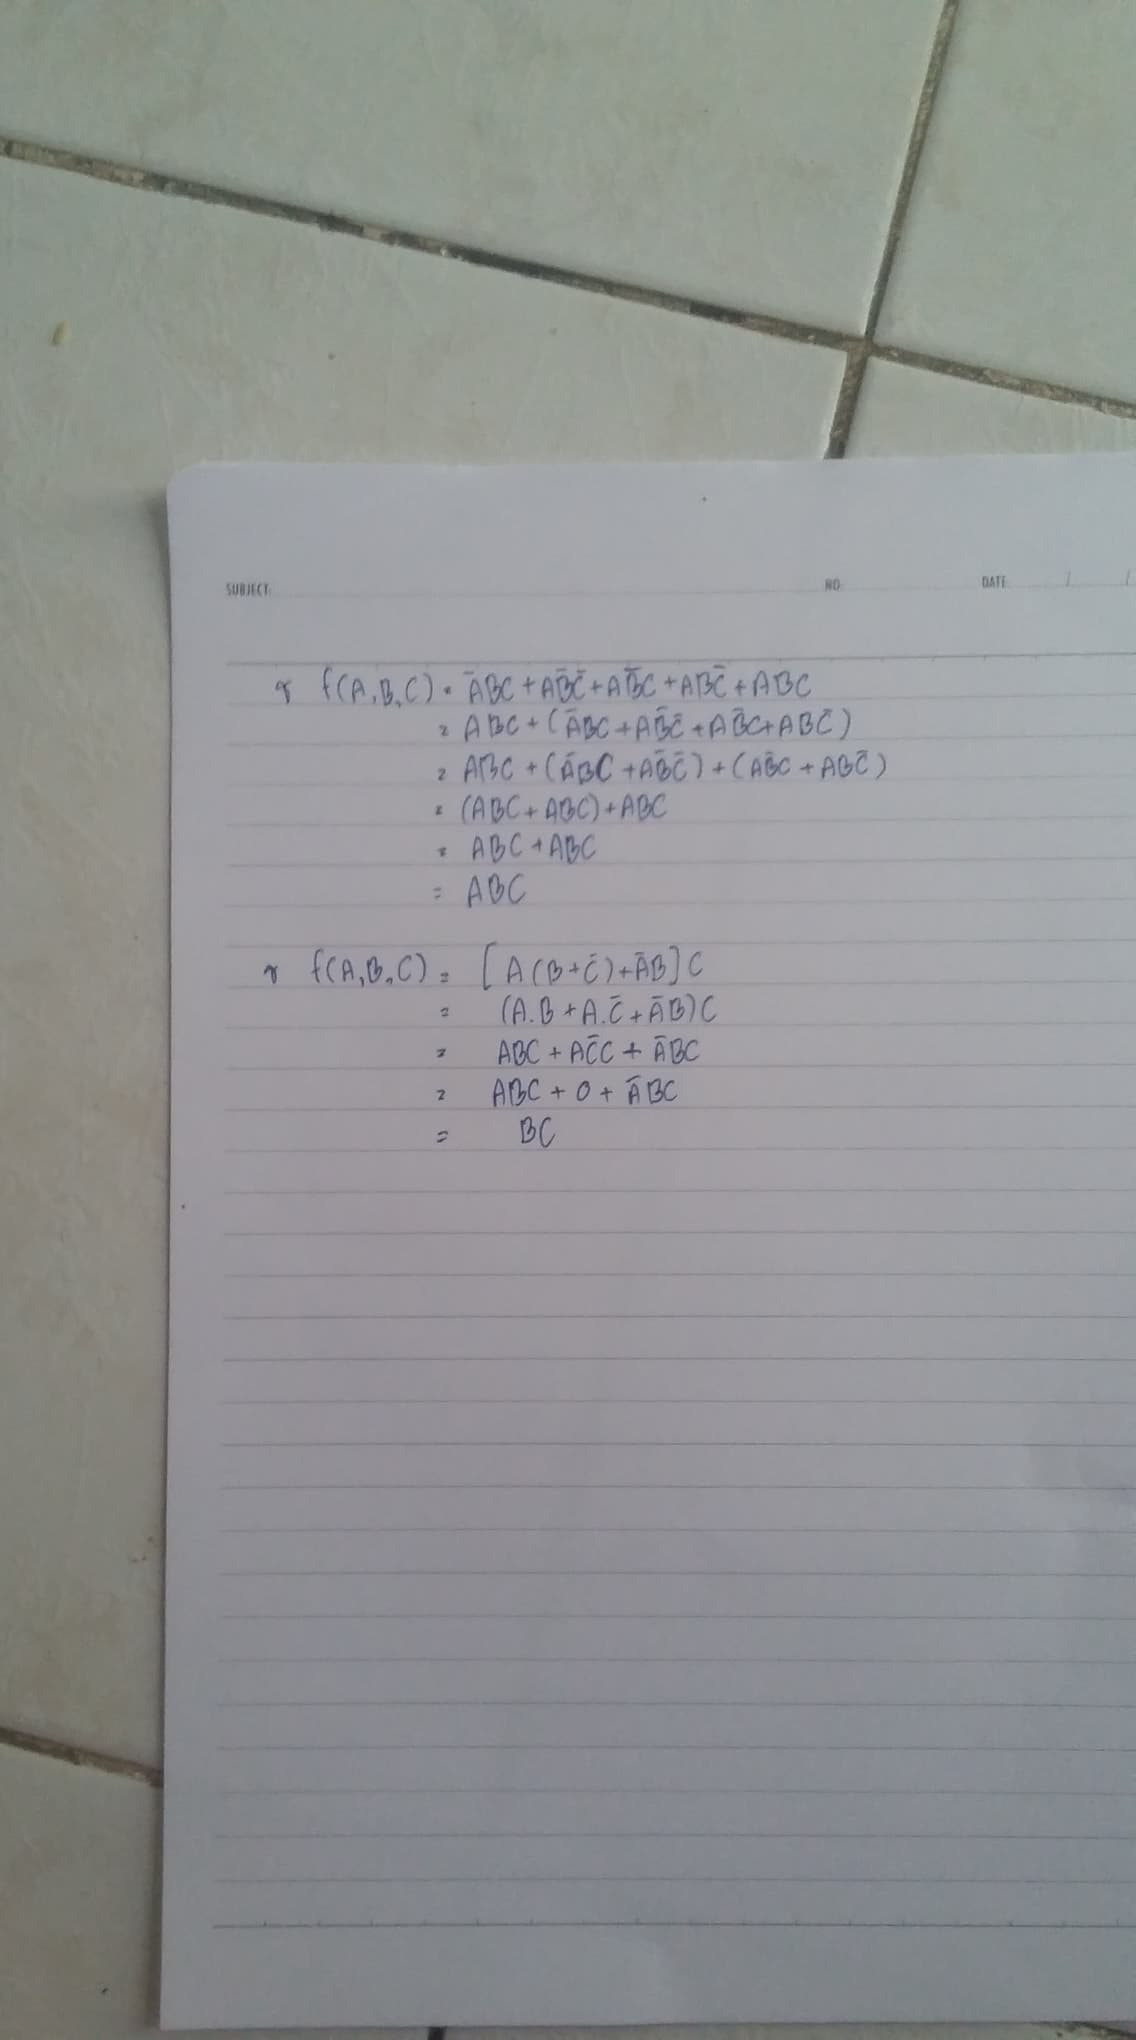 SUBJECT: NO: DATE: / /
* f(A,B,C) = ĀBC + AB̄C̄ + AB̄C + ABC̄ + ABC
= ABC + (ĀBC + AB̄C̄ + AB̄C + ABC̄)
= ABC + (ĀBC + AB̄C̄) + (AB̄C + ABC̄)
= (ABC + ABC) + ABC
= ABC + ABC
= ABC
* f(A,B,C) = [A(B+C̄)+ĀB]C
= (A.B + A.C̄ + ĀB)C
= ABC + AC̄C + ĀBC
= ABC + 0 + ĀBC
= BC